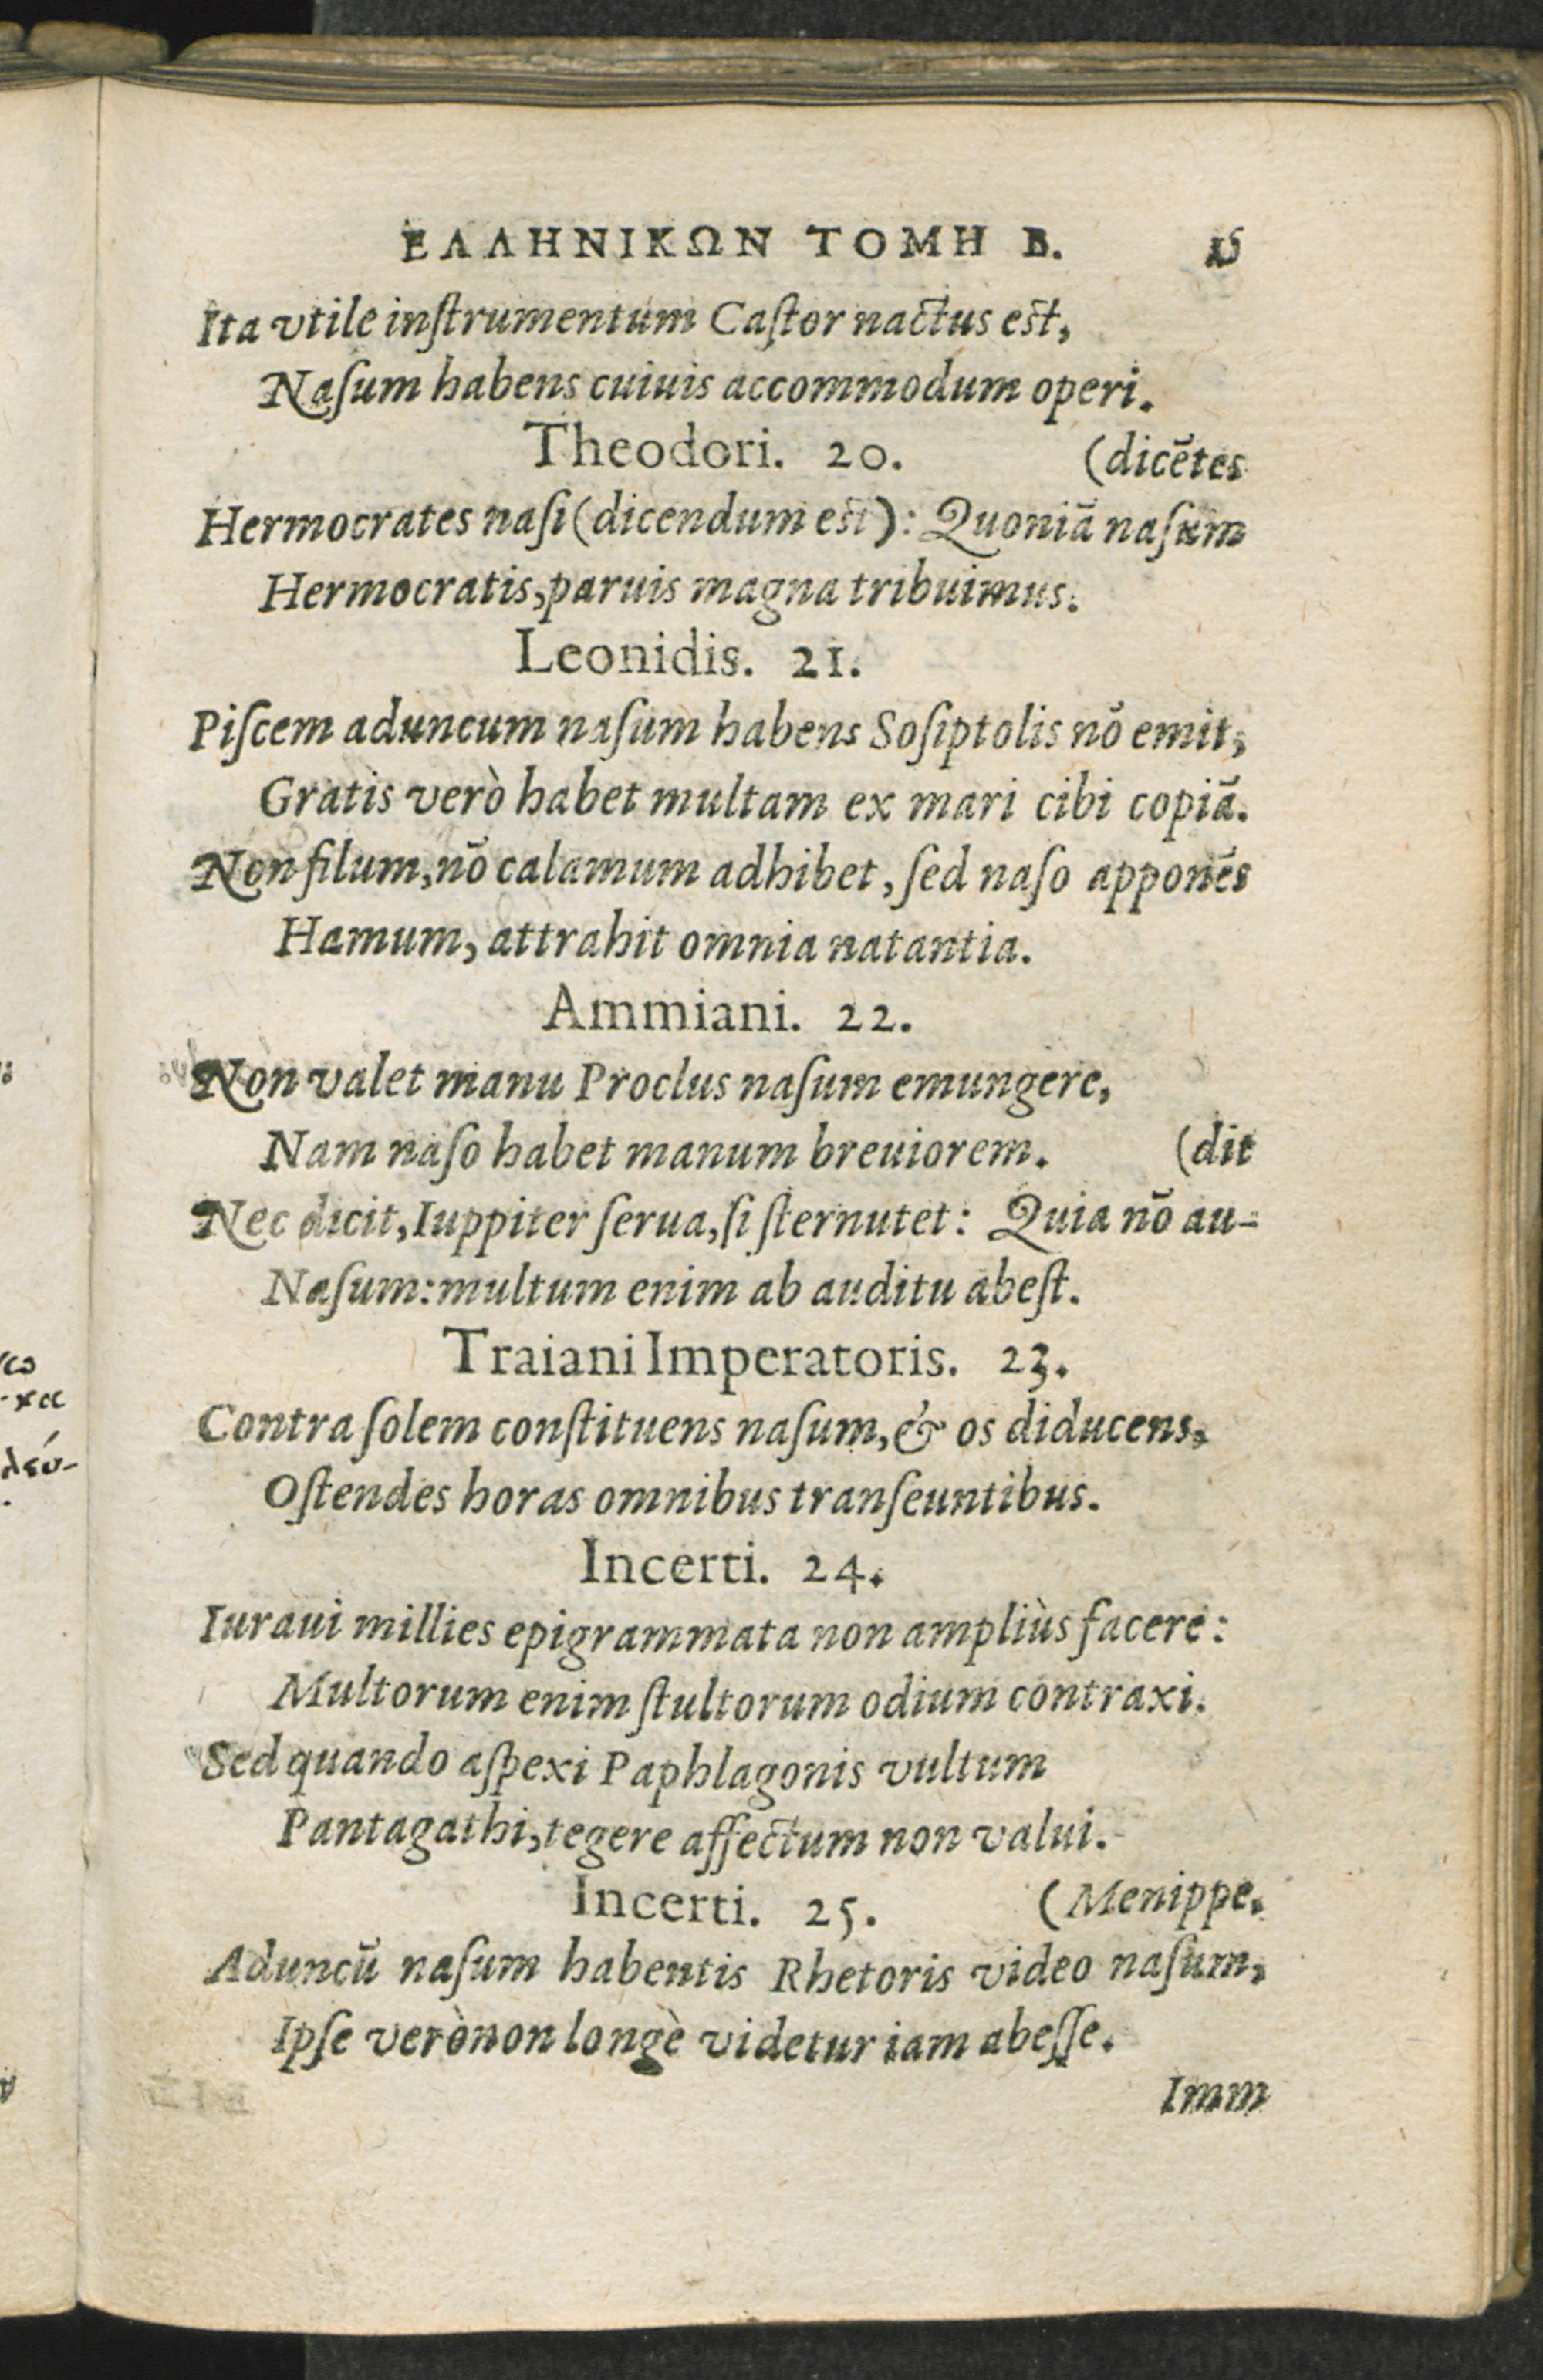 ΕΛΛΗΝΙΚΩΝ ΤΟΜΗ Β.
Ita vtile inſtrumentum Caſtor nactus est,
Naſum habens cuiuis accommodum operi.
Theodori. 20. (dicētes
Hermocrates naſi (dicendum est): Quoniā naſum
Hermocratis, paruis magna tribuimus.
Leonidis. 21.
Piſcem aduncum naſum habens Soſiptolis nō emit,
Gratis verò habet multam ex mari cibi copiā.
Non filum, nō calamum adhibet, ſed naſo apponēs
Hamum, attrahit omnia natantia.
Ammiani. 22.
Non valet manu Proclus naſum emungere,
Nam naſo habet manum breuiorem. (dit
Nec dicit, Iuppiter ſerua, ſi ſternutet: Quia nō au-
Naſum: multum enim ab auditu abeſt.
Traiani Imperatoris. 23.
Contra ſolem conſtituens naſum, & os diducens,
Oſtendes horas omnibus tranſeuntibus.
Incerti. 24.
Iuraui millies epigrammata non ampliùs facere:
Multorum enim ſtultorum odium contraxi.
Sed quando aſpexi Paphlagonis vultum
Pantagathi, tegere affectum non valui.
Incerti. 25. (Menippe.
Aduncū naſum habentis Rhetoris video naſum,
Ipſe verò non longè videtur iam abeſſe.
Imm